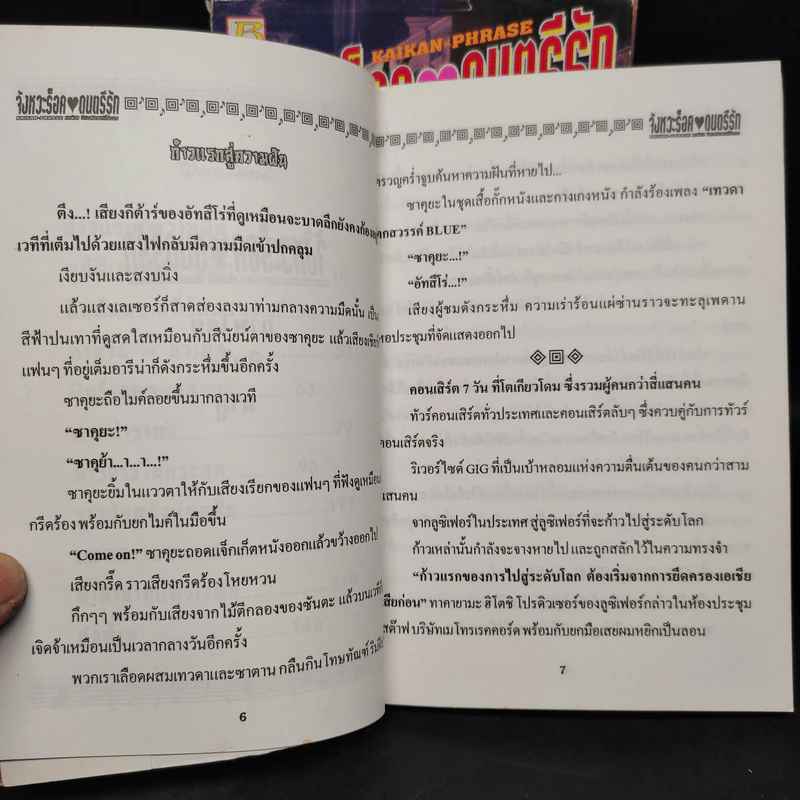 KAIKAN-PHRASE
จังหวะร็อค♥ดนตรีรัก
ก้าวแรกสู่ความฝัน
ตึง...! เสียงกีต้าร์ของอัทสึโร่ที่ดูเหมือนจะบาดลึกยังคงก้อง
เวทีที่เต็มไปด้วยแสงไฟกลับมีความมืดเข้าปกคลุม
เงียบงันและสงบนิ่ง
แล้วแสงเลเซอร์ก็สาดส่องลงมาท่ามกลางความมืดนั้น เป็น
สีฟ้าปนเทาที่ดูสดใสเหมือนกับสีนัยน์ตาของซาคุยะ แล้วเสียง
แฟนๆ ที่อยู่เต็มอารีน่าก็ดังกระหึ่มขึ้นอีกครั้ง
ซาคุยะถือไมค์ลอยขึ้นมากลางเวที
“ซาคุยะ!”
“ซาคุย้า...า...า...!”
ซาคุยะยิ้มในแววตาให้กับเสียงเรียกของแฟนๆ ที่ฟังดูเหมือน
กรีดร้อง พร้อมกับยกไมค์ในมือขึ้น
“Come on!” ซาคุยะถอดแจ็กเก็ตหนังออกแล้วขว้างออกไป
เสียงกรี๊ด ราวเสียงกรีดร้องโหยหวน
กึกๆๆ พร้อมกับเสียงจากไม้ตีกลองของซันตะ แล้วบนเวที
เจิดจ้าเหมือนเป็นเวลากลางวันอีกครั้ง
พวกเราเลือดผสมเทวดาและซาตาน กลืนกินโทษทัณฑ์
6
จังหวะร็อค♥ดนตรีรัก
ครวญคร่ำจูบค้นหาความฝันที่หายไป...
ซาคุยะในชุดเสื้อกั๊กหนังและกางเกงหนัง กำลังร้องเพลง “เทวดา
ตกสวรรค์ BLUE”
“ซาคุยะ...!”
“อัทสึโร่...!”
เสียงผู้ชมดังกระหึ่ม ความเร่าร้อนแผ่ซ่านราวจะทะลุเพดาน
หอประชุมที่จัดแสดงออกไป
คอนเสิร์ต 7 วัน ที่โตเกียวโดม ซึ่งรวมผู้คนกว่าสี่แสนคน
ทัวร์คอนเสิร์ตทั่วประเทศและคอนเสิร์ตลับๆ ซึ่งควบคู่กับการทัวร์
คอนเสิร์ตจริง
ริเวอร์ไซด์ GIG ที่เป็นเบ้าหลอมแห่งความตื่นเต้นของคนกว่าสาม
แสนคน
จากลูซิเฟอร์ในประเทศ สู่ลูซิเฟอร์ที่จะก้าวไปสู่ระดับโลก
ก้าวเหล่านั้นกำลังจะจางหายไป และถูกสลักไว้ในความทรงจำ
“ก้าวแรกของการไปสู่ระดับโลก ต้องเริ่มจากการยึดครองเอเชีย
เสียก่อน” ทาคายามะ ฮิโตชิ โปรดิวเซอร์ของลูซิเฟอร์กล่าวในห้องประชุม
สต๊าฟ บริษัทเมโทรเรคคอร์ด พร้อมกับยกมือเสยผมหยิกเป็นลอน
7